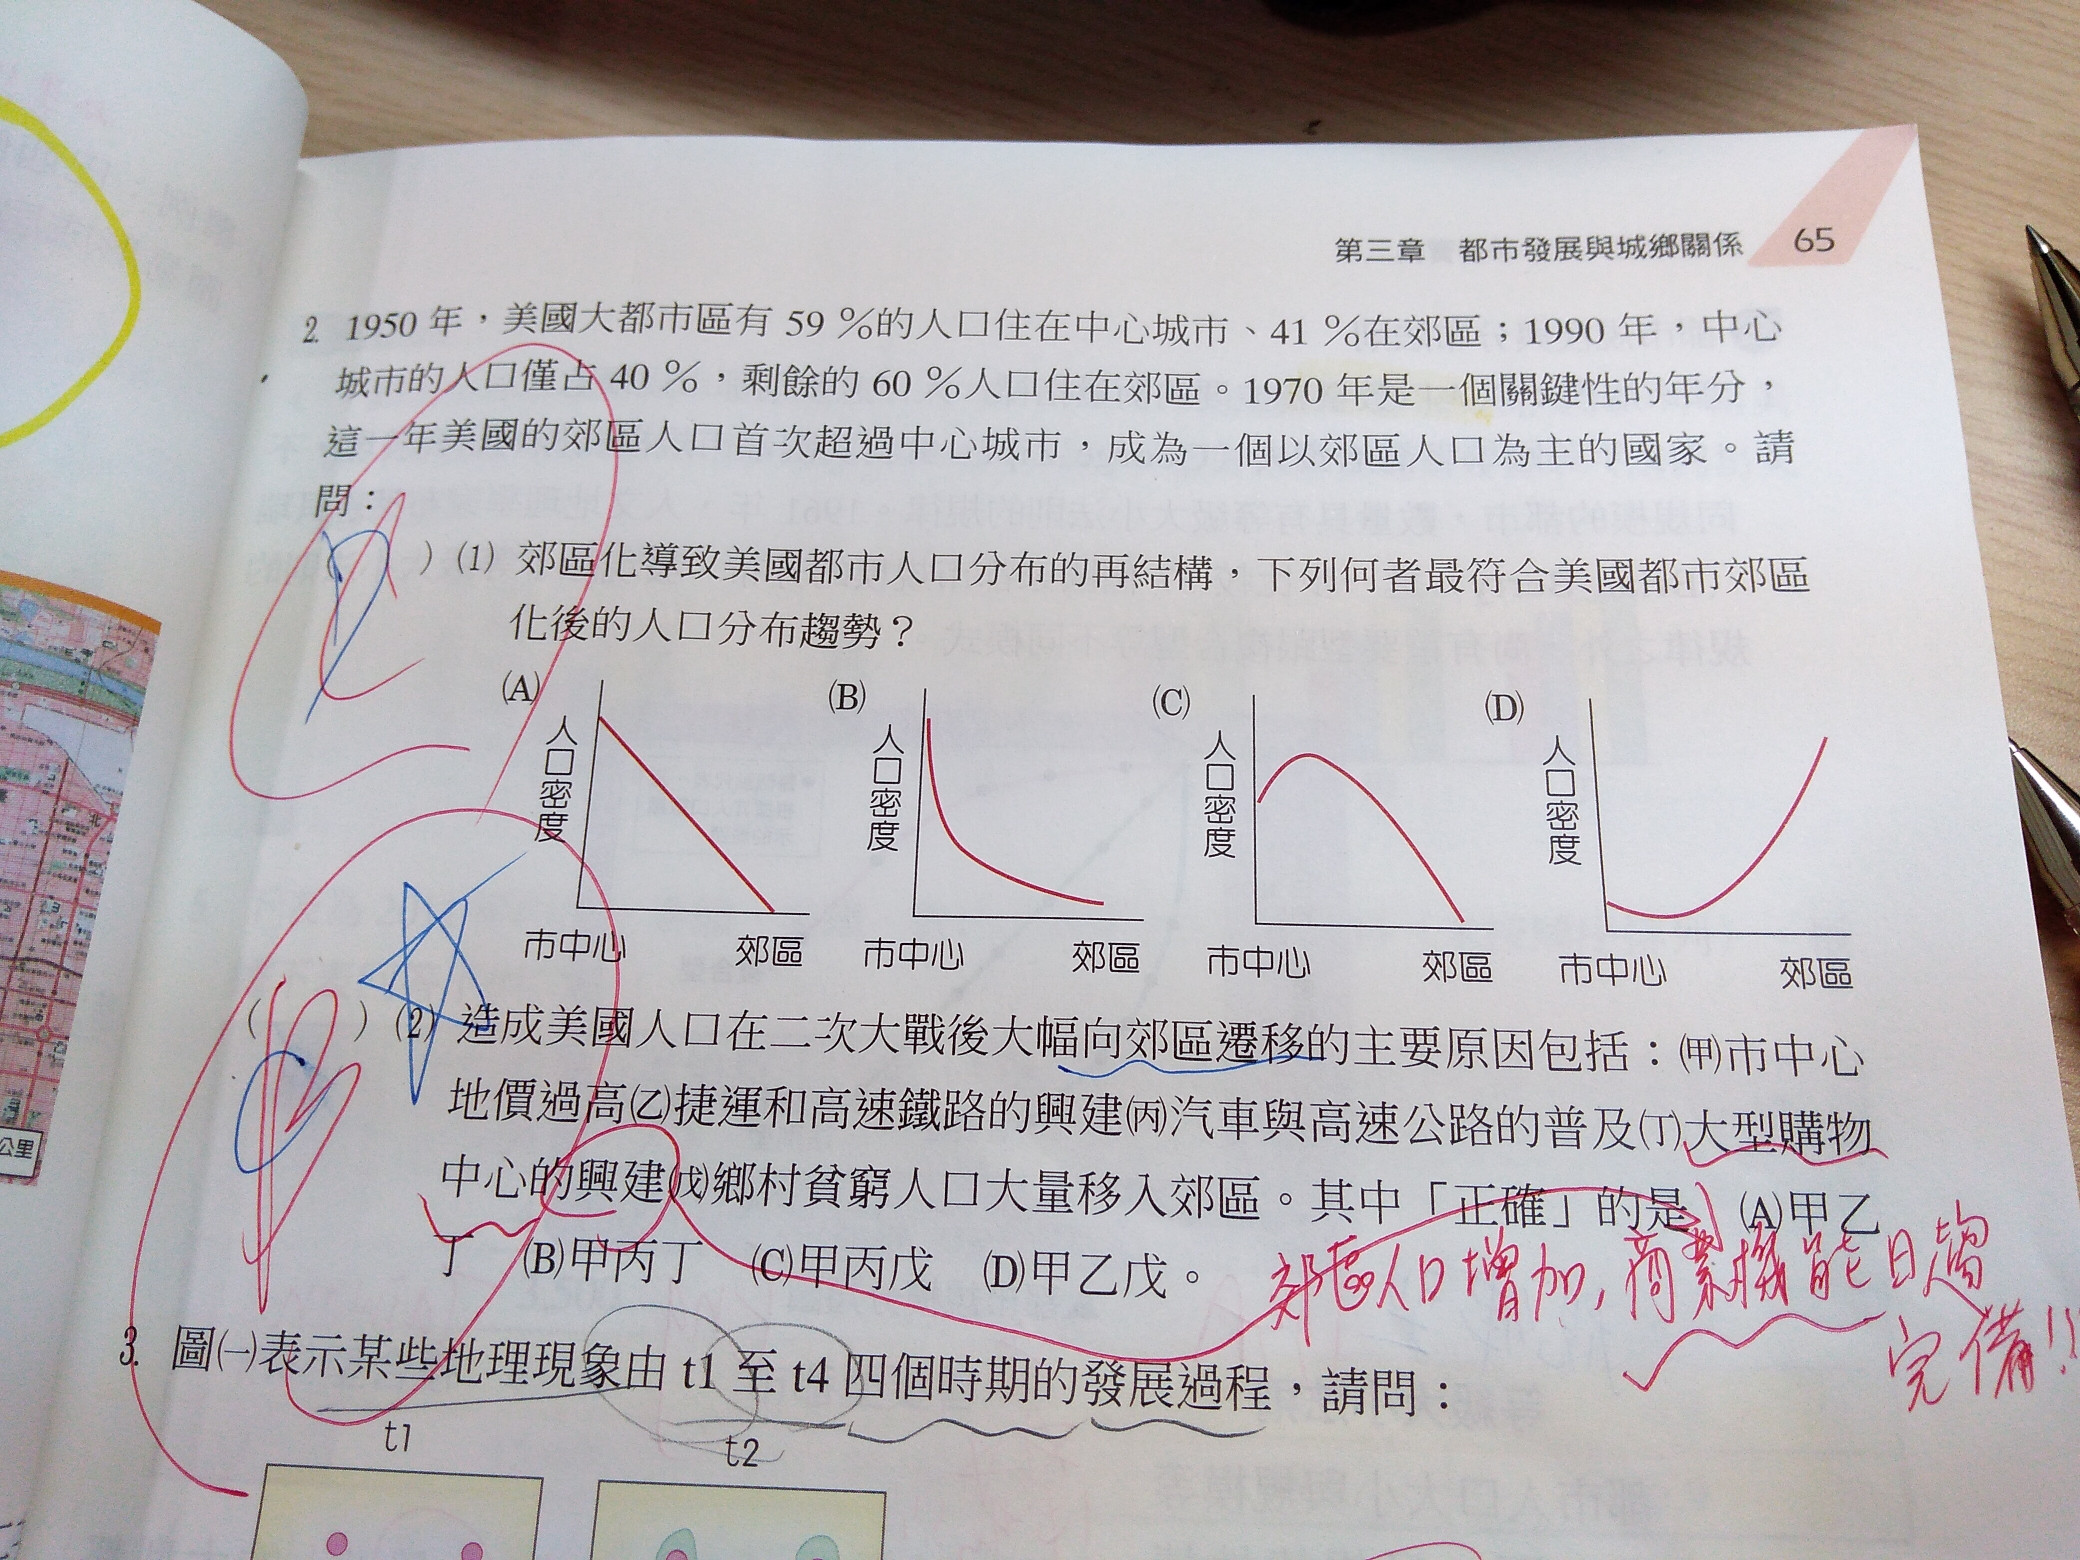 第三章 都市發展與城鄉關係 65
2. 1950 年，美國大都市區有 59 %的人口住在中心城市、41 %在郊區；1990 年，中心
城市的人口僅占 40 %，剩餘的 60 %人口住在郊區。1970 年是一個關鍵性的年分，
這一年美國的郊區人口首次超過中心城市，成為一個以郊區人口為主的國家。請
問：
( ) (1) 郊區化導致美國都市人口分布的再結構，下列何者最符合美國都市郊區
化後的人口分布趨勢？
(A) (B) (C) (D)
人口密度 人口密度 人口密度 人口密度
市中心 郊區 市中心 郊區 市中心 郊區 市中心 郊區
( ) (2) 造成美國人口在二次大戰後大幅向郊區遷移的主要原因包括：(甲)市中心
地價過高(乙)捷運和高速鐵路的興建(丙)汽車與高速公路的普及(丁)大型購物
中心的興建(戊)鄉村貧窮人口大量移入郊區。其中「正確」的是 (A)甲乙
丁 (B)甲丙丁 (C)甲丙戊 (D)甲乙戊。
郊區人口增加，商業機能日趨
完備！！
3. 圖(一)表示某些地理現象由 t1 至 t4 四個時期的發展過程，請問：
t1 t2
公里
北